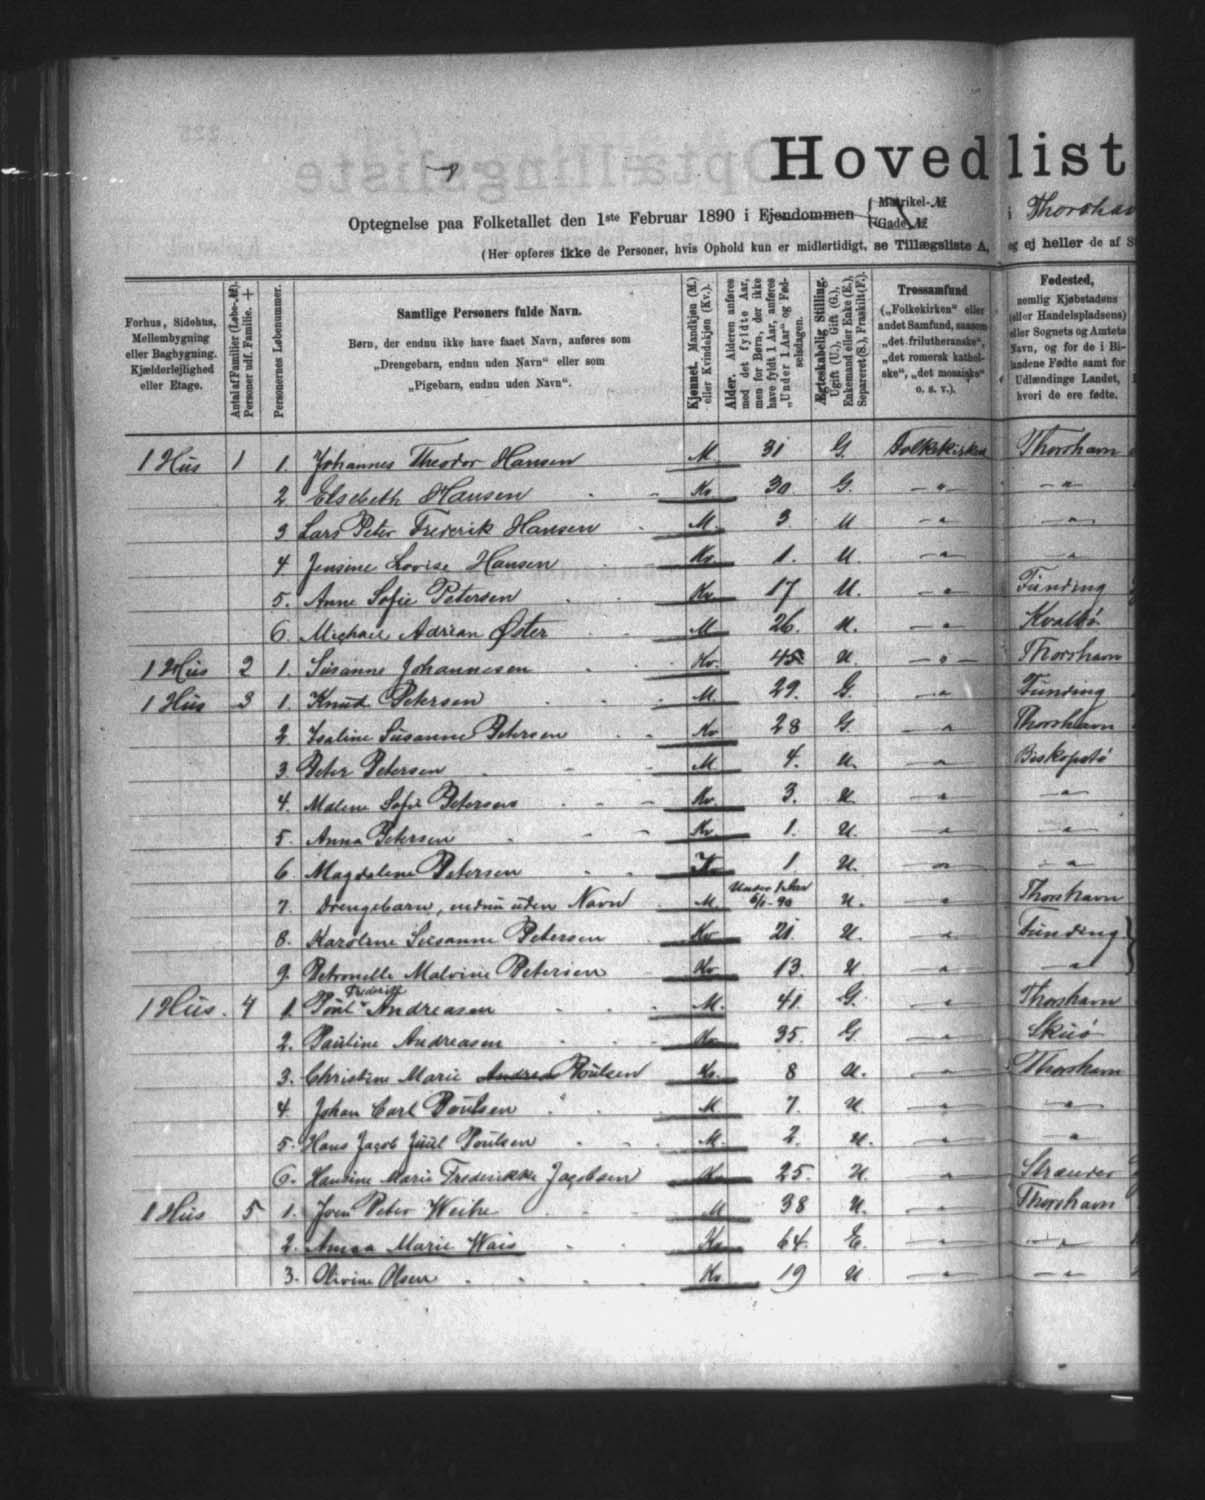 Hovedlist
Optegnelse paa Folketallet den 1ste Februar 1890 i Ejendommen { Matrikel-№ i Thorshav
Gade № 
(Her opføres ikke de Personer, hvis Ophold kun er midlertidigt, se Tillægsliste A, og ej heller de af S
Forhus, Sidehus, Mellembygning eller Bagbygning. Kjælderlejlighed eller Etage.
Antal af Familier (Løbe-№). Personer udf. Familie. +
Personernes Løbenummer.
Samtlige Personers fulde Navn.
Børn, der endnu ikke have faaet Navn, anføres som
„Drengebarn, endnu uden Navn“ eller som
„Pigebarn, endnu uden Navn“.
Kjønnet. Mandkjøn (M.) eller Kvindekjøn (Kv.).
Alder. Alderen anføres med det fyldte Aar, men for Børn, der ikke have fyldt 1 Aar, anføres „Under 1 Aar“ og Fødselsdagen.
Ægteskabelig Stilling. Ugift (U.), Gift (G.), Enkemand eller Enke (E.), Separeret (S.), Fraskilt (F.).
Trossamfund („Folkekirken“ eller andet Samfund, saasom „det frilutheranske“, „det romersk katholske“, „det mosaiske“ o. s. v.).
Fødested, nemlig Kjøbstadens (eller Handelspladsens) eller Sognets og Amtets Navn, og for de i Bilandene Fødte samt for Udlændinge Landet, hvori de ere fødte.
1 Hus 1 1. Johannes Theodor Hansen M 31 G. Folkekirken Thorshavn
2 Elsebeth Hansen Kv 30. G. — " — — " —
3 Lars Peter Frederik Hansen M. 3 U — " — — " —
4 Jensine Lovise Hansen Kv. 1. U. — " — — " —
5. Anne Sofie Petersen Kv. 17 U. — " — Funding
6. Michael Adrian Øster M 26. U. — " — Kvalbø
1 Hus 2 1. Susanne Johannesen Kv. 45 U. — " — Thorshavn
1 Hus 3 1. Knud Petersen M. 29. G. — " — Funding
2. Isaline Susanne Petersen Kv 28 G. — " — Thorshavn
3. Peter Petersen M 4. U. — " — Biskopstø
4. Malene Sofie Petersen Kv. 3. U. — " — — " —
5. Anna Petersen Kv. 1. U. — " — — " —
6. Magdalene Petersen Kv 1 U. — " — — " —
7. Drengebarn, endnu uden Navn M. Under 1 Aar 6/1-90 U. — " — Thorshavn
8. Karoline Susanne Petersen Kv 21 U. — " — Funding }
9. Petronelle Malvine Petersen Kv 13. U — " — — " —
1 Hus. 4 1. Poul Frederik Andreasen M. 41 G. — " — Thorshavn
2. Pauline Andreasen Kv. 35. G — " — Skuø
3. Christine Marie Andrea Poulsen Kv. 8 U. — " — Thorshavn
4. Johan Carl Poulsen M 7. U. — " — — " —
5. Hans Jacob Juul Poulsen M. 2. U. — " — — " —
6. Hansine Marie Frederikke Jacobsen Kv 25. U. — " — Strender
1 Hus 5 1. Joen Peter Weihe M 38 U. — " — Thorshavn
2. Anna Marie Wais Kv 64. E. — " — — " —
3. Olivine Olsen Kv 19 U. — " — — " —